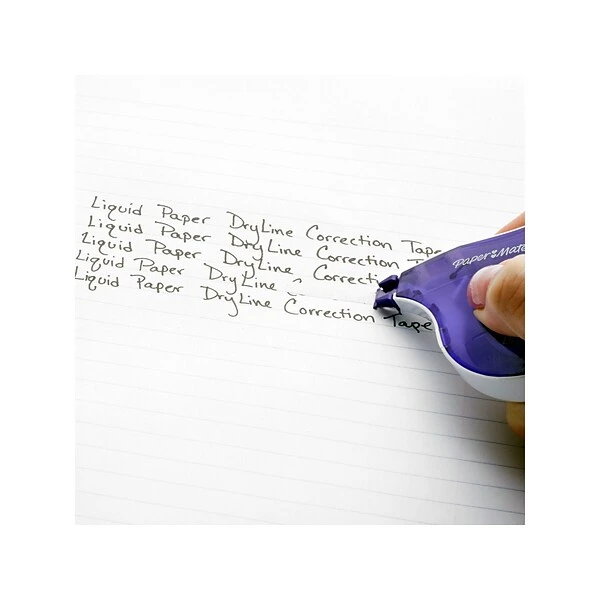 Liquid Paper DryLine Correction Tape
Liquid Paper DryLine Correction
Liquid Paper DryLine Correction
Liquid Paper DryLine
Liquid Paper DryLine Correction Tape
Paper Mate